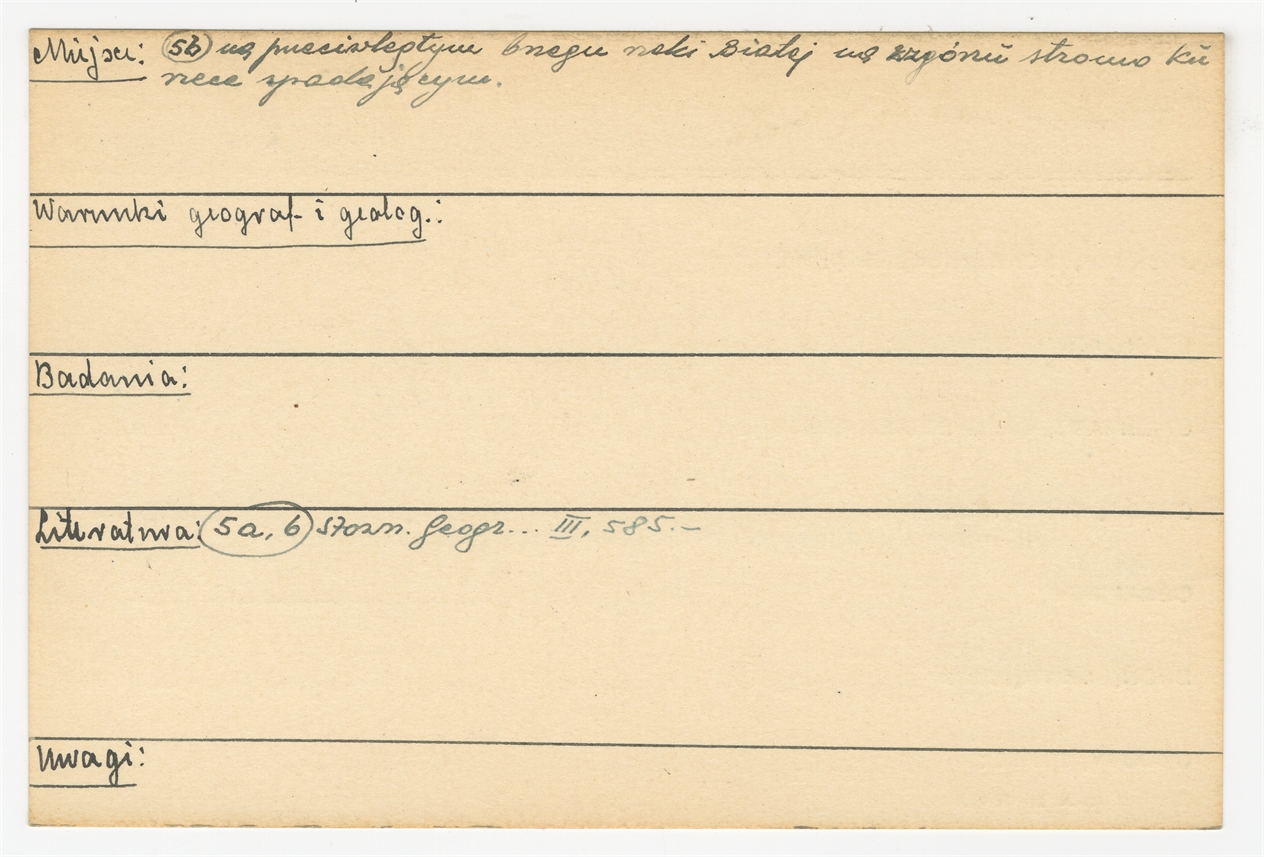 Miejsce: (5b) na przeciwległym brzegu rzeki Białej na wzgórzu stromo ku
rzece spadającym.
Warunki geograf. i geolog.:
Badania:
Literatura: (5a, b) Słown. Geogr... III, 585.-
Uwagi: